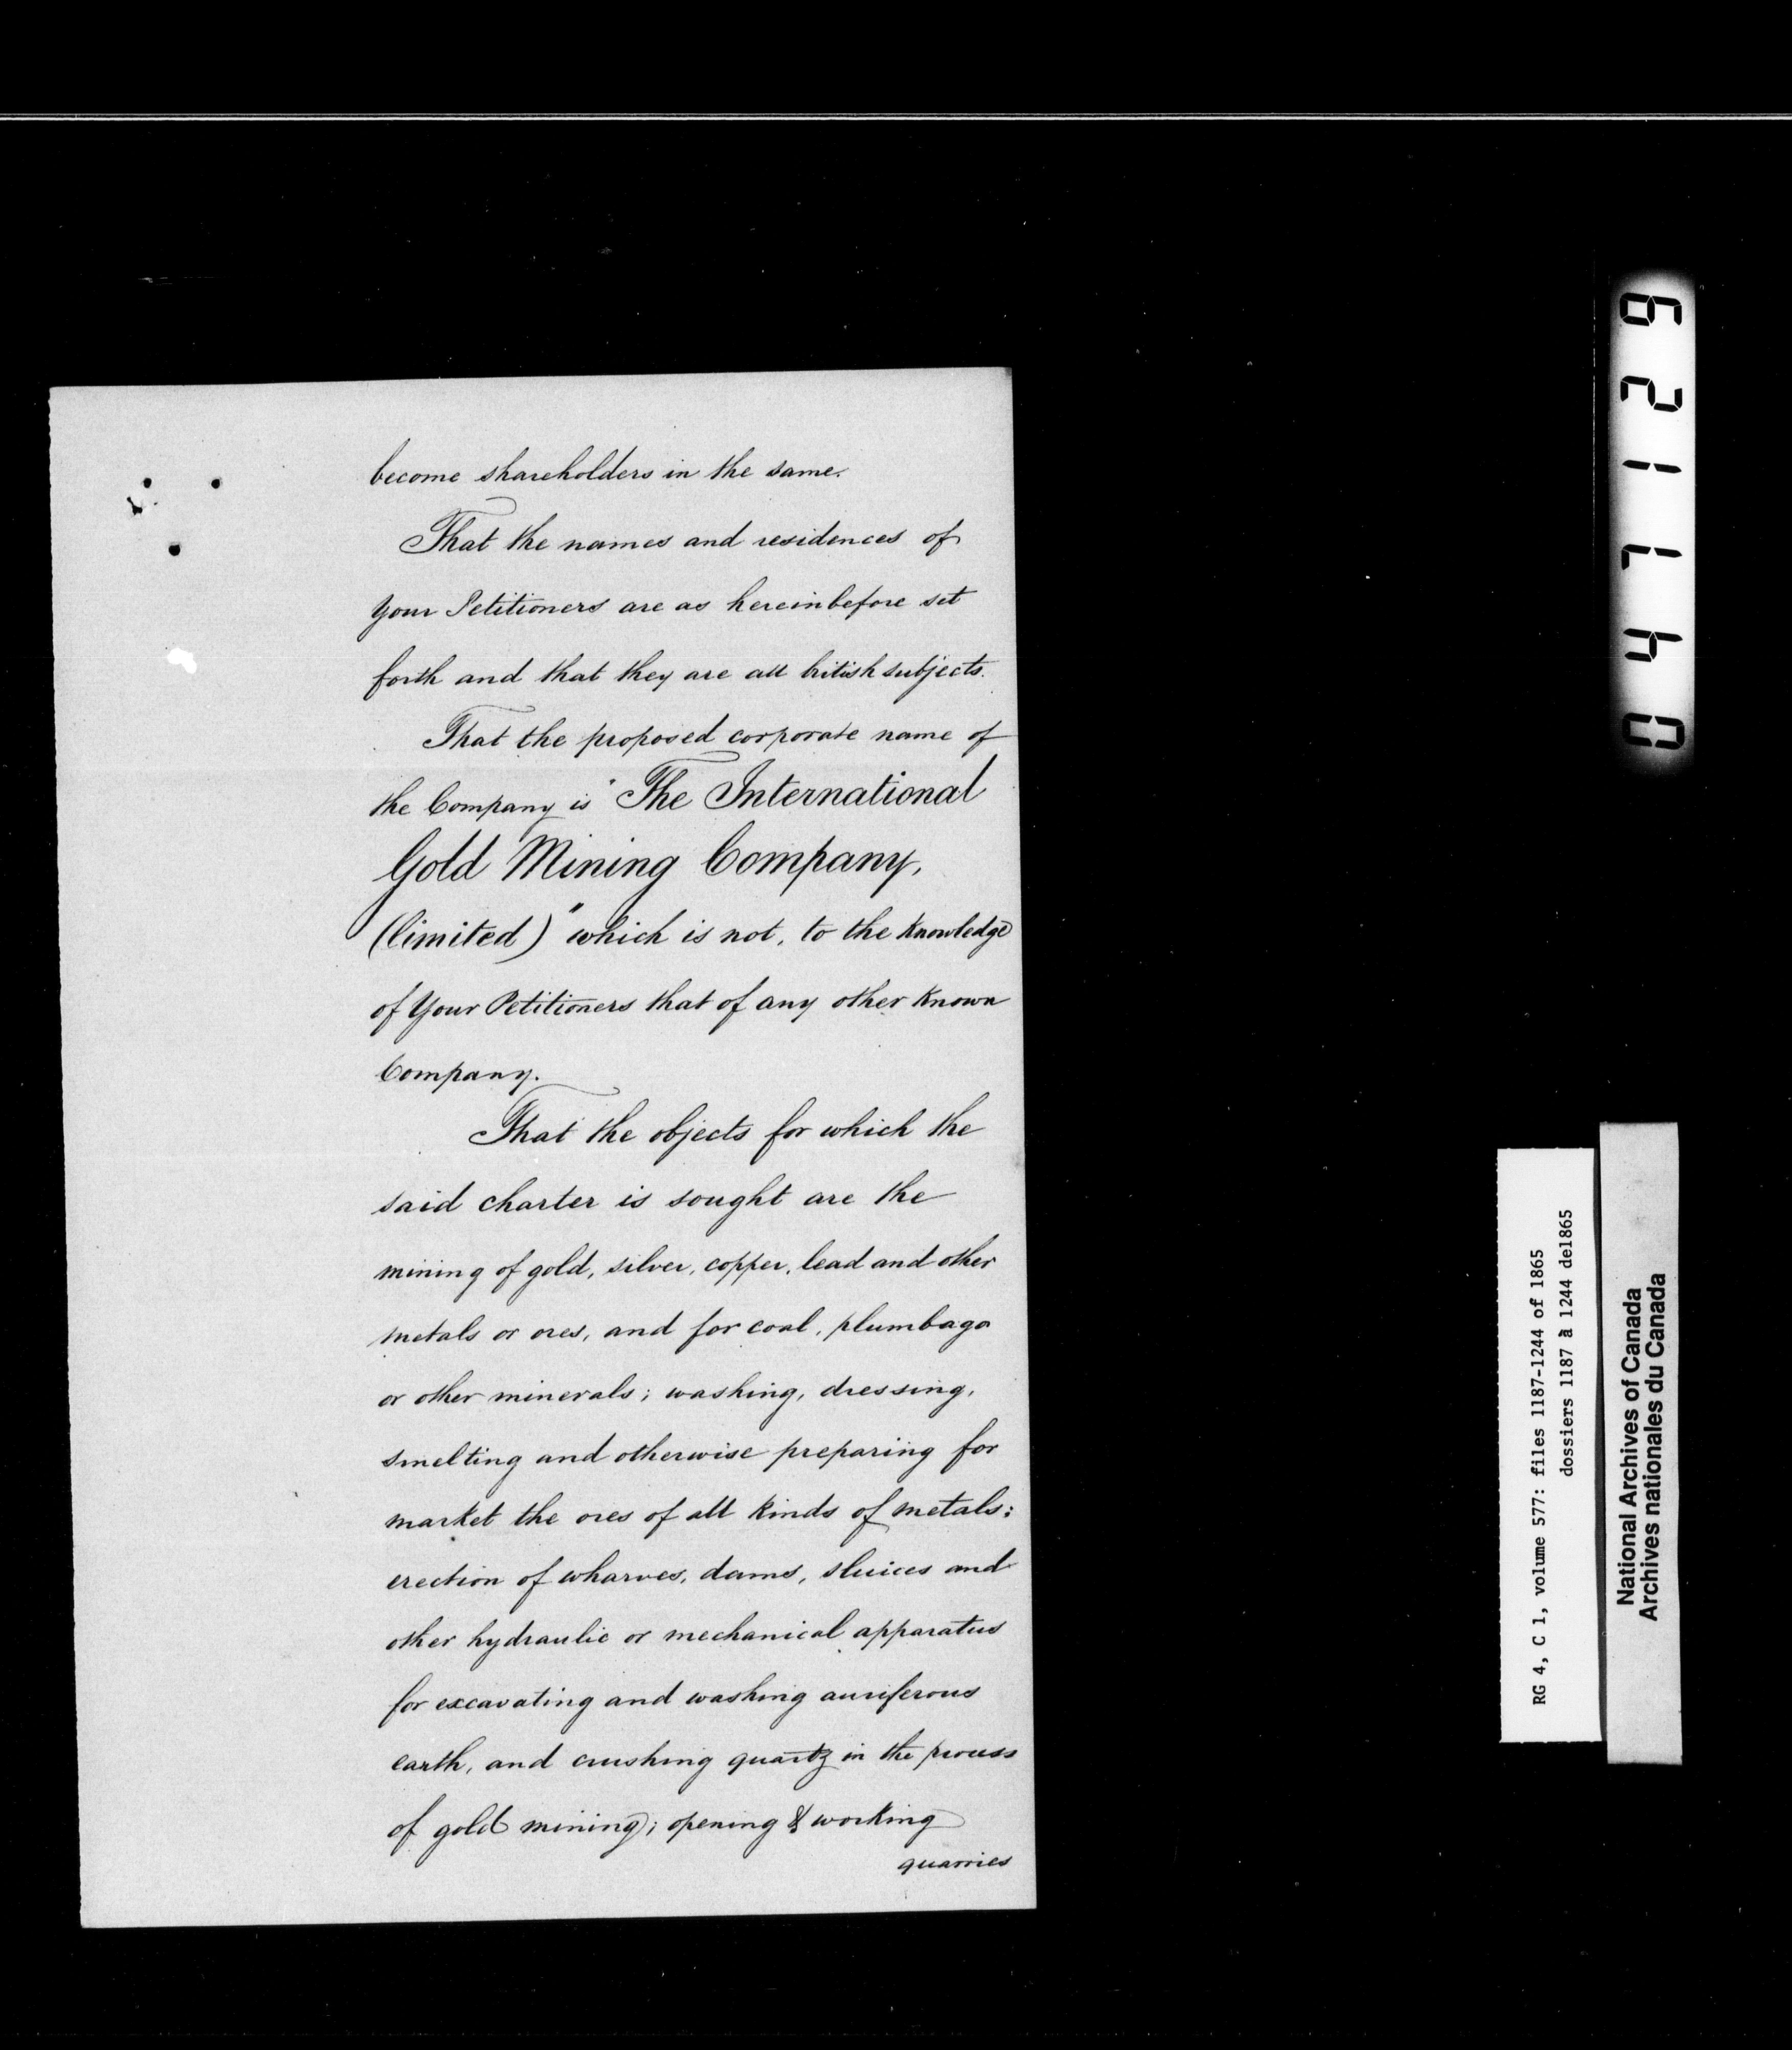 become shareholders in the same.
That the names and residences of
Your Petitioners are as hereinbefore set
forth and that they are all british subjects.
That the proposed corporate name of
the Company is "The International
Gold Mining Company,
(limited)" which is not, to the knowledge
of Your Petitioners that of any other known
Company.
That the objects for which the
said charter is sought are the
mining of gold, silver, copper, lead and other
metals or ores, and for coal, plumbago
or other minerals; washing, dressing,
smelting and otherwise preparing for
market the ores of all kinds of metals;
erection of wharves, dams, sluices and
other hydraulic or mechanical apparatus
for excavating and washing auriferous
earth, and crushing quartz in the process
of gold mining; opening & working
quarries
047129
RG 4, C 1, volume 577: files 1187-1244 of 1865
dossiers 1187 à 1244 de1865
National Archives of Canada
Archives nationales du Canada